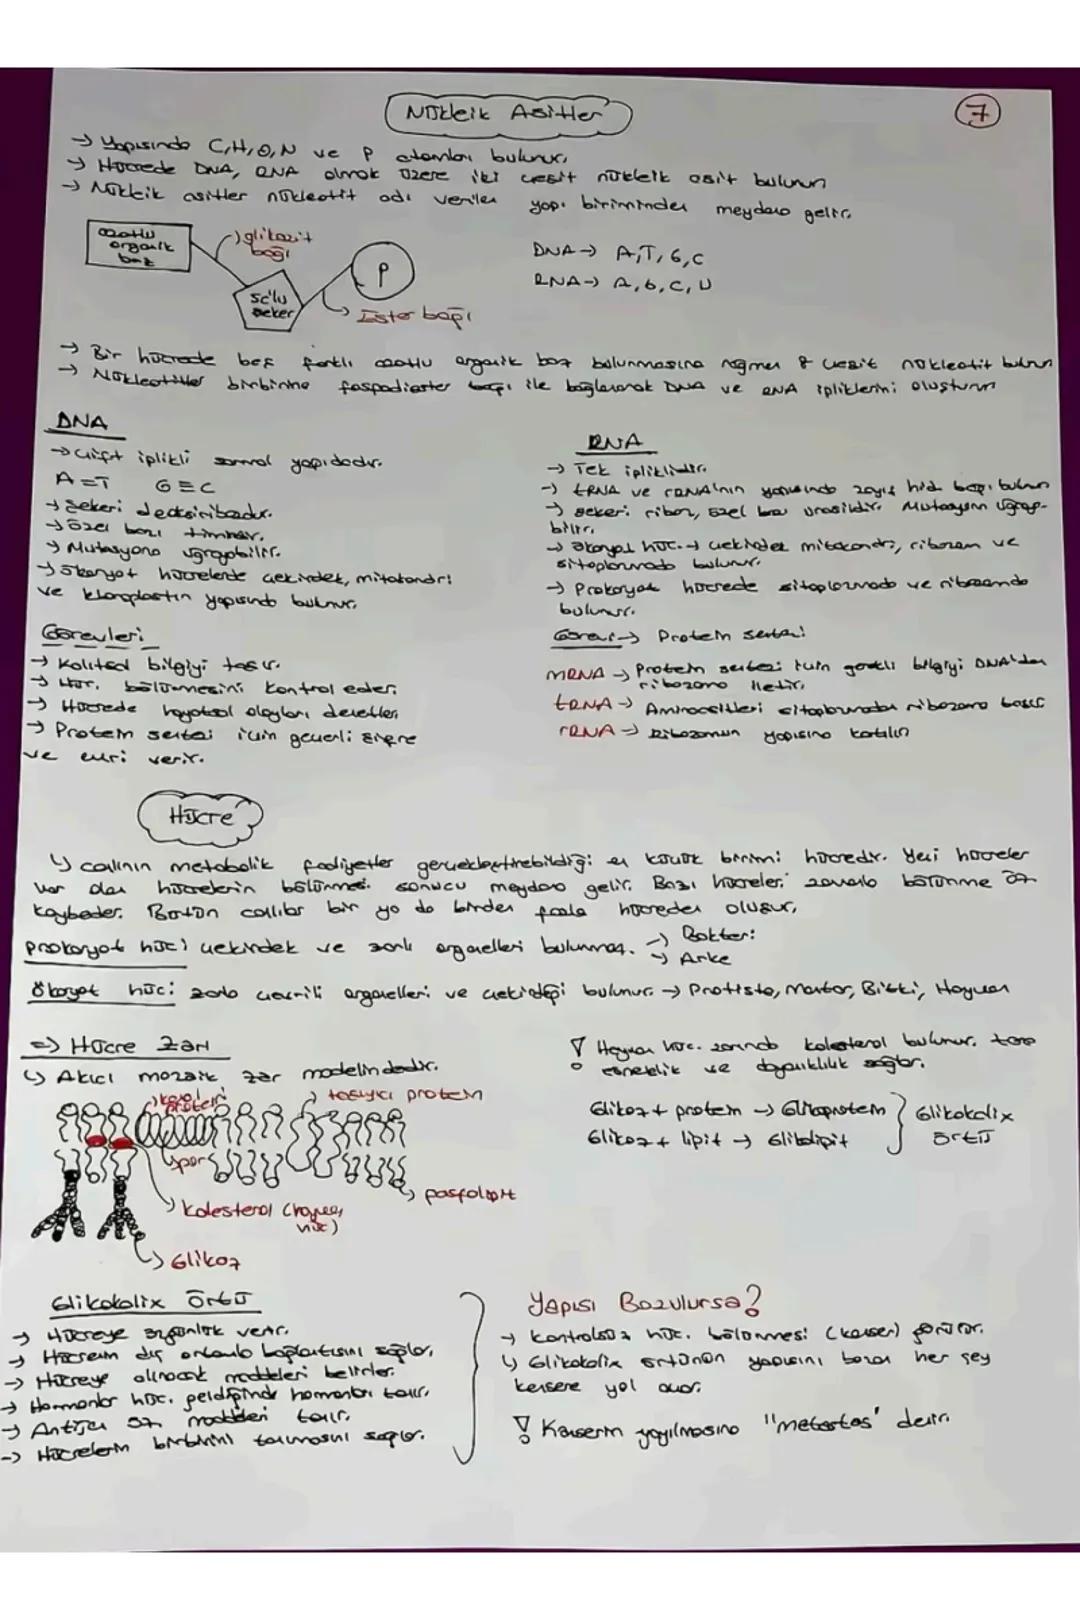 Nükleik Asitler
7
→ Yapısında C, H, O, N ve P atomları bulunur.
→ Hücrede DNA, RNA olmak üzere iki çeşit nükleik asit bulunur
→ Nükleik asitler nükleotit adı verilen yapı biriminden meydana gelir.
azotlu organik baz
glikozit bağı
5c'lu şeker
P
Ester bağı
DNA → A, T, G, C
RNA → A, G, C, U
→ Bir hücrede beş farklı azotlu organik baz bulunmasına rağmen 8 çeşit nükleotit bulunur
→ Nükleotitler birbirine fosfodiester bağı ile bağlanarak DNA ve RNA ipliklerini oluşturur
DNA
→ Çift iplikli sarmal yapıdadır.
A=T G≡C
→ Şekeri deoksiribozdur.
→ Özel bazı timindir.
→ Mutasyona uğrayabilir.
→ Ökaryot hücrelerde çekirdek, mitokondri
ve kloroplastın yapısında bulunur.
Görevleri
→ Kalıtsal bilgiyi taşır.
→ Hüc. bölünmesini kontrol eder.
→ Hücrede hayatsal olayları denetler.
→ Protein sentezi için gerekli şifre
ve emri verir.
RNA
→ Tek ipliklidir.
→ tRNA ve rRNA'nın yapısında zayıf hid. bağı bulunur
→ Şekeri riboz, özel baz urasildir. Mutasyona uğraya-
bilir.
→ Ökaryot hüc. → çekirdek mitokondri, ribozom ve
sitoplazmada bulunur.
→ Prokaryot hücrede sitoplazmada ve ribozomda
bulunur.
Görevi → Protein sentezi
mRNA → Protein sentezi için gerekli bilgiyi DNA'dan
ribozoma iletir.
tRNA → Aminoasitleri sitoplazmadan ribozoma taşır
rRNA → Ribozomun yapısına katılır
Hücre
↳ canlının metabolik faaliyetler gerçekleştirebildiği en küçük birimi hücredir. Yeni hücreler
var olan hücrelerin bölünmesi sonucu meydana gelir. Bazı hücreler zamanla bölünme öz.
kaybeder. Bütün canlılar bir ya da birden fazla hücreden oluşur.
Prokaryot hüc: çekirdek ve zarlı organelleri bulunmaz. → Bakteri
→ Arke
Ökaryot hüc: zarla çevrili organelleri ve çekirdeği bulunur. → Protista, Mantar, Bitki, Hayvan
⇒ Hücre Zarı
↳ Akıcı mozaik zar modelindedir.
kanal proteini
taşıyıcı protein
por
kolesterol (hayvan hüc)
fosfolipit
Glikoz
! Hayvan hüc. zarında kolesterol bulunur. zara
esneklik ve dayanıklılık sağlar.
Glikoz + protein → Glikoprotein
Glikoz + lipit → Glikolipit
Glikokalix örtü
Glikokalix Örtü
→ Hücreye özgünlük verir.
→ Hücrenin dış ortamla bağlantısını sağlar.
→ Hücreye alınacak maddeleri belirler.
→ Hormonlar hüc. geldiğinde hormonları tanır.
→ Antijen öz. maddeleri tanır.
→ Hücrelerin birbirini tanımasını sağlar.
Yapısı Bozulursa?
→ kontrolsüz hüc. bölünmesi (kanser) görülür.
↳ Glikokalix örtünün yapısını bozan her şey
kansere yol açar.
! Kanserin yayılmasına "metastas" denir.